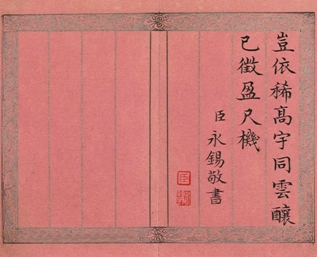 豈依稀高宇同雲釀
已徵盈尺機
臣永錫敬書